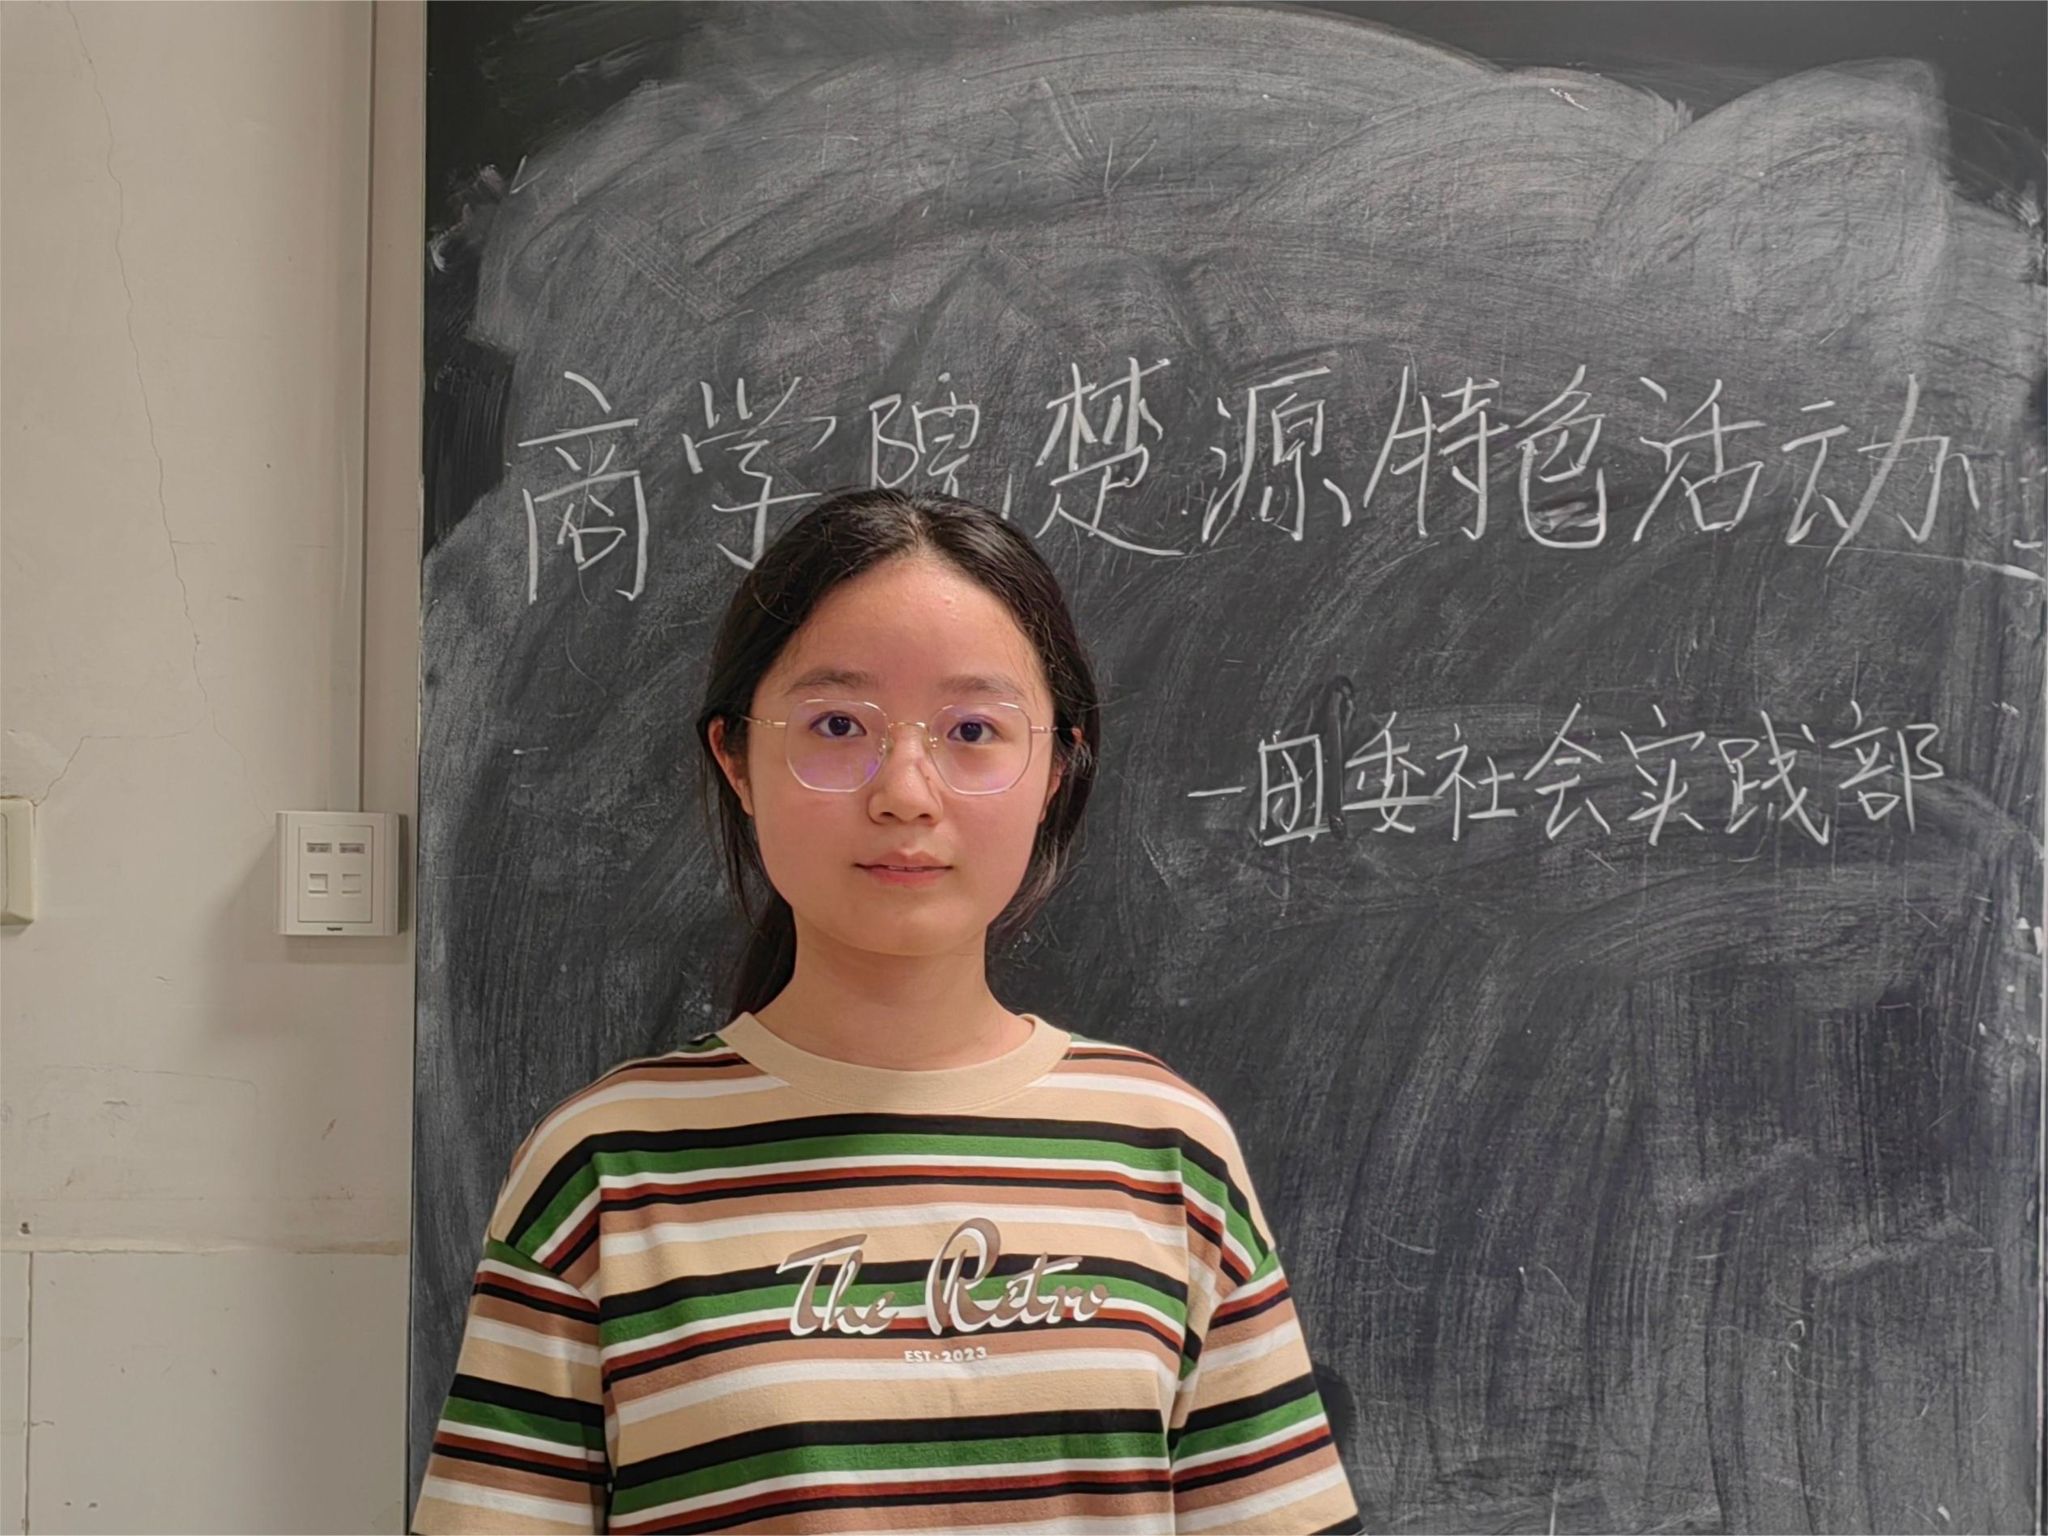 商学院楚源特色活动
—团委社会实践部
The Retro
EST·2023